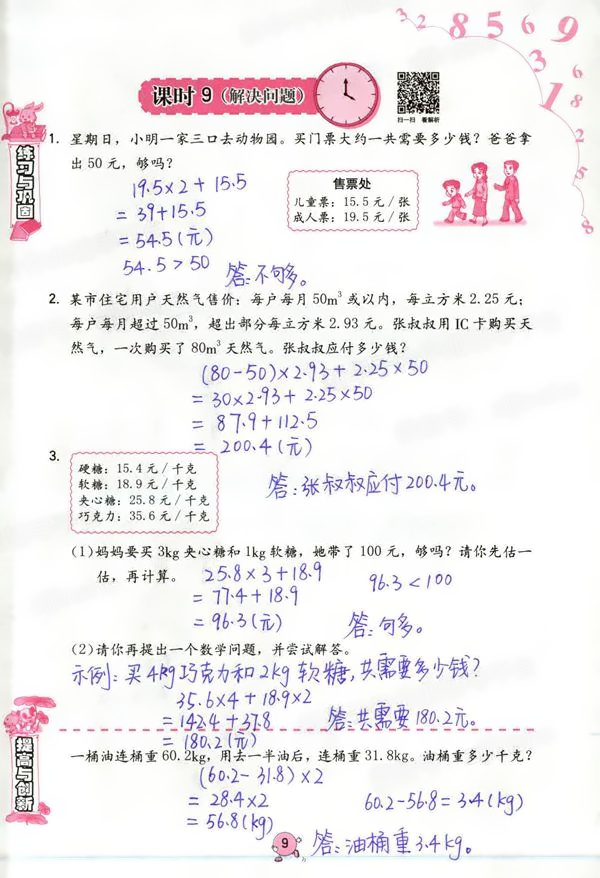 3 2 8 5 6 9
3 1 6 8 2 5 8
课时 9（解决问题）
扫一扫 看解析
练习与巩固
1. 星期日，小明一家三口去动物园。买门票大约一共需要多少钱？爸爸拿
出 50 元，够吗？
售票处
儿童票：15.5 元 / 张
成人票：19.5 元 / 张
19.5×2+15.5
=39+15.5
=54.5(元)
54.5>50 答:不句多。
2. 某市住宅用户天然气售价：每户每月 50m³ 或以内，每立方米 2.25 元；
每户每月超过 50m³，超出部分每立方米 2.93 元。张叔叔用 IC 卡购买天
然气，一次购买了 80m³ 天然气。张叔叔应付多少钱？
(80-50)×2.93+2.25×50
=30×2.93+2.25×50
=87.9+112.5
=200.4(元)
答:张叔叔应付200.4元。
3.
硬糖：15.4 元 / 千克
软糖：18.9 元 / 千克
夹心糖：25.8 元 / 千克
巧克力：35.6 元 / 千克
(1)妈妈要买 3kg 夹心糖和 1kg 软糖，她带了 100 元，够吗？请你先估一
估，再计算。
25.8×3+18.9
=77.4+18.9
=96.3(元)
96.3<100
答:句多。
(2)请你再提出一个数学问题，并尝试解答。
示例:买4kg巧克力和2kg软糖,共需要多少钱?
35.6×4+18.9×2
=142.4+37.8
=180.2(元)
答:共需要180.2元。
提高与创新
一桶油连桶重 60.2kg，用去一半油后，连桶重 31.8kg。油桶重多少千克？
(60.2-31.8)×2
=28.4×2
=56.8(kg)
60.2-56.8=3.4(kg)
答:油桶重3.4kg。
9